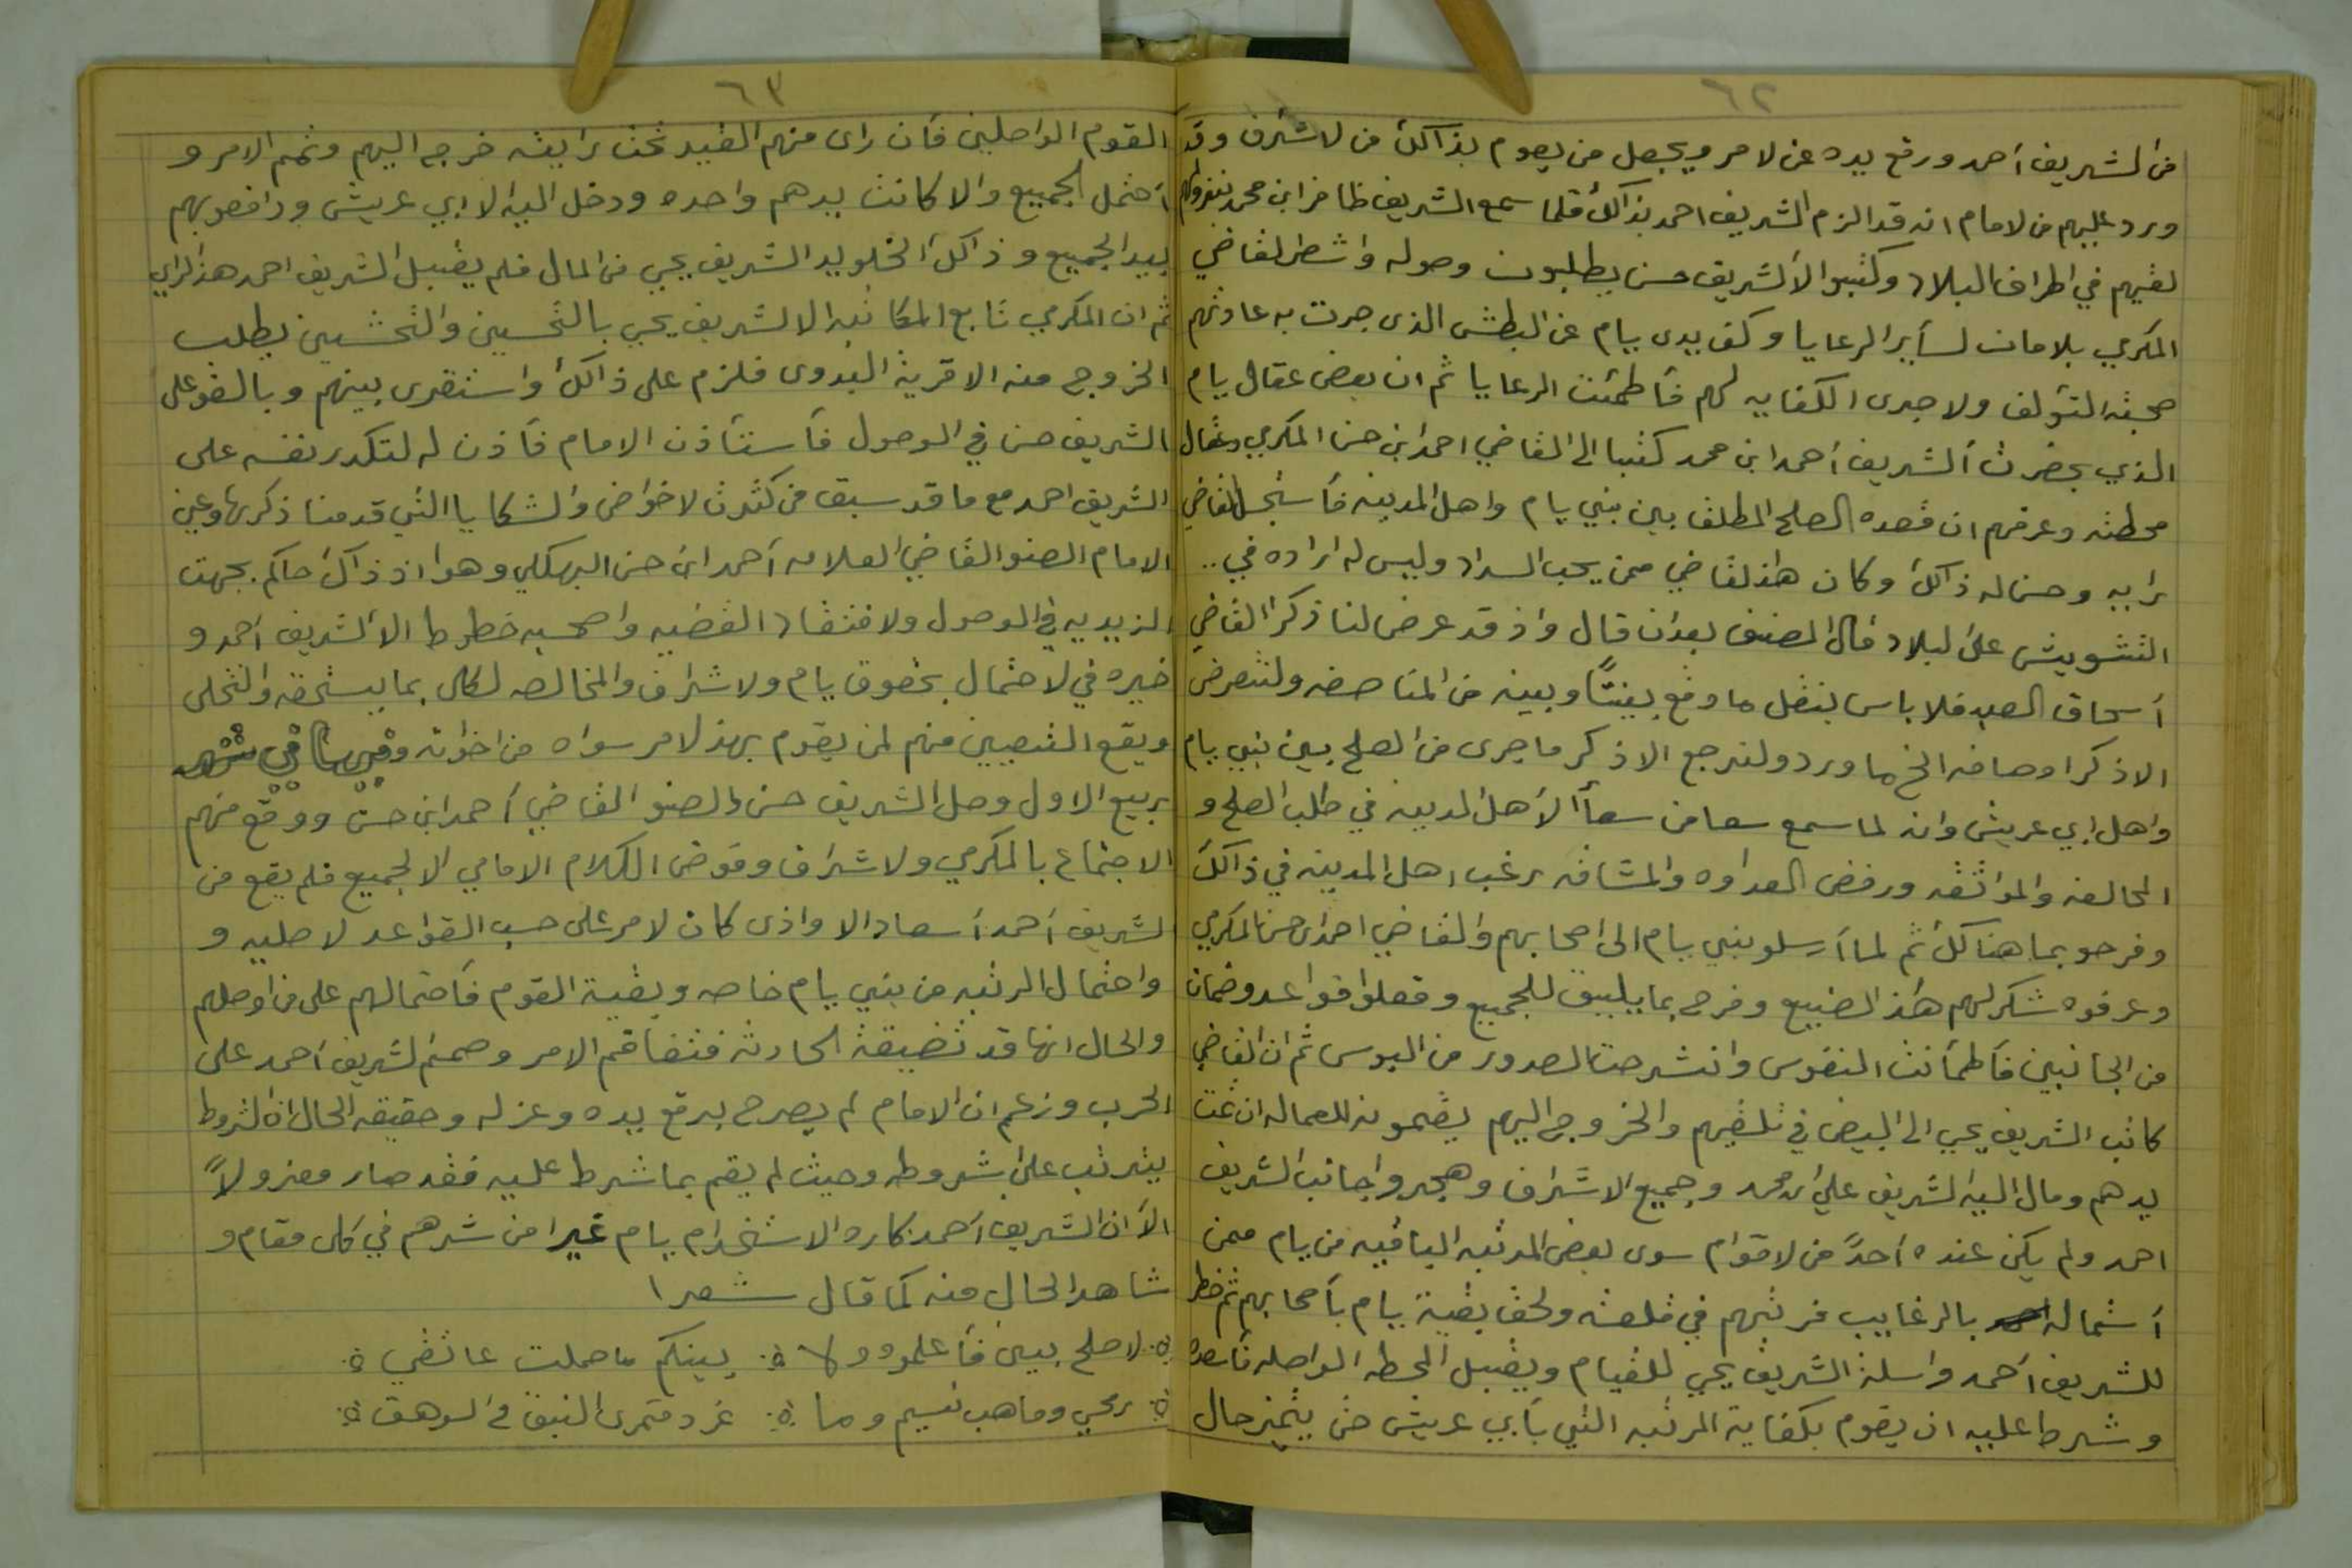 ٦٢
من الشريف أحمد ورفع يده عن لامر ويجعل من يقوم بذالك من لاشرف وقد
ورد عليهم من لامام انه قد الزم الشريف احمد بذالك فلما سمع الشريف ظافر ابن محمد
لقيهم في اطراف البلاد وكتبوا لا الشريف حسن يطلبون وصوله واشطر لقاضي
المكرمي بلامان لسأير الرعايا وكف يدى يام عن البطش الذى جرت به عادتهم
صحبته التؤلف ولاجرى الكفايه لهم فأطمئنت الرعايا ثم ان بعض عقال يام
الذي بحضرت ألشريف أحمد ابن محمد كتبا الى القاضي احمد ابن حسن المكرمي وعقال
محطته وعرفهم ان قصده الصلح المطلق بين بني يام واهل المدينه فأستجل القاضي
برايه وحسن له ذالك وكان هذلقاضي ممن يحب السداد وليس له اراده في ..
التشويش على لبلاد قال المصنف بعد ان قال واذ قد عرض لنا ذكر القاضي
أسحاق العبد فلا باس بنقل ما وقع بيننًا وبينه من المناصفه ولنتعرض
الا ذكر اوصافه الخ ما ورد ولنرجع الا ذكر ما جرى من الصلح بين بني يام
واهل ابي عريش وانه لما سمع سعا من سعأ الأهل المدينه في طلب الصلح و
المحالفه والمواثقه ورفض العداوه والمشاقه رغب اهل المدينه في ذالك
وفرحو بما هنالك ثم لما أرسلو بني يام الى اصحابهم والقاضي احمد ابن حسن المكرمي
وعرفوه شكر لهم هذ الصنيع وفرح بما يليق للجميع وفعلوا قواعد وضمان
من الجانبين فأطمأنت النفوس وانشرحت الصدور من البوس ثم ان القاضي
كاتب الشريف يحيى الى البيض في تلقيهم والخروج اليهم يضمونه للعماله ان تمت
يدهم ومال اليه الشريف علي ابن محمد وجميع الاشراف وهجروا جانب الشريف
احمد ولم يكن عنده أحدً من لاقوام سوى بعض المرتبه الباقيه من يام ممن
أستماله بالرغايب فرتبهم في قلعته ولحق بقية يام بأصحابهم ثم خطر
للشريف أحمد واسلة الشريف يحيى للقيام ويقبل المحطه الواصله
وشرط عليه ان يقوم بكفاية المرتبه التي بأبي عريش حتى يتميز حال
٦٣
القوم الواصلين فأن راى منهم القيد تحت رايته خرج اليهم وتمم الامر و
أحتمل الجميع والا كانت يدهم واحده ودخل اليه لا ابي عريش ودافعو بهم
بيد الجميع وذالك الخلو يد الشريف يحيى من المال فلم يقبل الشريف احمد هذ لراي
ثم ان المكرمي تابع المكاتبه الا لشريف يحيى بالتحسين والتحشين يطلب
الخروج منه الا قرية البدوى فلزم على ذالك واستقرى بينهم وبالقو على
الشريف حسن في الوصول فأستأذن الامام فأذن له لتكدر نفسه على
الشريف احمد مع ما قد سبق من كثرت لاخواض والشكايا التي قدمنا ذكرها وعين
الامام الصنو القاضي العلامه أحمد ابن حسن البهكلي وهو اذ ذاك حاكم بجهت
الزيديه في الوصول ولافتقاد القضيه واصحبه خطوط الا الشريف أحمد و
خيره في لاحتمال بحقوق يام ولاشراف والمخالصه لكل بما يستحقه والتخلى
ويقع التعيين منهم لمن يقوم بهذ لامر سواه من اخوانه وفي شهر
ربيع الاول وصل الشريف حسن والصنو القاضي أحمد ابن حسن ووقع منهم
الاجتماع بالمكرمي ولاشراف وفوض الكلام الامامي الا الجميع فلم يقع من
الشريف أحمد أسعادا لا واذى كان لامر على حسب القواعد لاصليه و
واحتمال المرتبه من بني يام خاصه وبقية القوم فأحتمالهم على من اوصلهم
والحال انها قد تضيقة الحادثه فتفاقم الامر وصمم الشريف أحمد على
الحرب وزعم ان الامام لم يصرح برفع يده وعزله وحقيقة الحال ان الشروط
يترتب على شروطه وحيث لم يقم بما شرط عليه فقد صار معزولاً
الأ ان الشريف أحمد كاره الا ستخدام يام غيرا من شرهم في كل مقام و
شاهد الحال منه كما قال شعرا
لاصلح بيني فأعلموه ولا بينكم ما حملت عاتقي
رمحي وما هب نسيم وما غرد قمرى النبق في لوهق